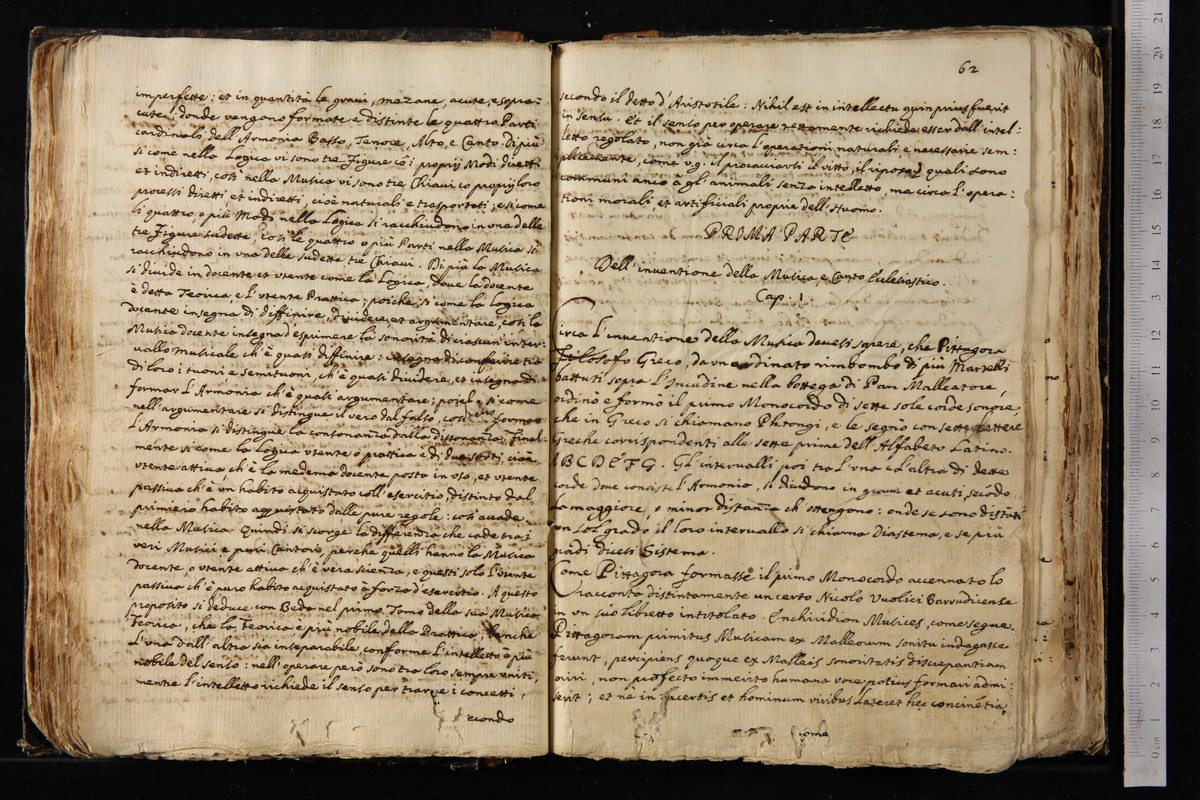 imperfette: et in quantità le gravi, mezane, acute, e sopra=
cute: donde vengono formate e distinte le quattro Parti
cardinali dell'Armonia Basso, Tenore, Alto, e Canto. Di più
si come nella Logica vi sono tre Figure co i proprij Modi diretti
et indiretti, così nella Musica vi sono tre Chiavi co proprij loro
processi diretti et indiretti, cioè naturali e trasportati; e si come
li quattro, o più Modi nella Logica si racchiudono in una delle
tre Figure sudette, così le quattro o più Parti nella Musica si
racchiudono in una delle sudette tre Chiavi. Di più la Musica
si divide in docente et utente come la Logica, dove la docente
è detta Teorica, e l'utente Prattica; poiche si come la Logica
docente insegna di diffinire, dividere, et argumentare, così la
Musica docente insegna d'esprimere la sonorità di ciascun inter=
vallo musicale ch'è quasi diffinire: insegna di conferire tra
di loro i tuoni e semituoni, ch'è quasi dividere, et insegna di
formar l'Armonia ch'è quasi argumentare; poiche si come
nell'argumentare si distingue il vero dal falso, così in formar
l'Armonia si distingue la consonanza dalla dissonanza. Final=
mente si come la Logica utente o prattica è di due sorti, cioè
utente attiva, ch'è la medema docente posta in uso, et utente
passiva ch'è un habito acquistato coll'esercitio, distinto dal
primiero habito acquistato dalle pure regole: così accade
nella Musica. Quindi si scorge la differenza che cade tra i
veri Musici e puri Cantori, perche quelli hanno la Musica
docente, o utente attiva ch'è vera scienza, e questi solo l'utente
passiva ch'è puro habito acquistato à forza d'esercitio. A questo
proposito si deduce con Beda nel primo Tomo della sua Musica
Teorica, che la Teorica è più nobile della Prattica, benche
l'una dall'altra sia inseparabile, conforme l'intelletto è più
nobile del senso: nell'operare però sono tra loro sempre uniti,
mentre l'intelletto richiede il senso per trarne i concetti,
secondo
62
secondo il detto d'Aristotile: Nihil est in intellectu quin prius fuerit
in sensu. Et il senso per operare rettamente richiede esser dall'intel=
letto regolato, non già circa l'operationi naturali e necessarie sem=
plicemente, come v.g. il procacciarsi il vitto, il riposo, quali sono
communi anco à gli animali senza intelletto, ma circa l'opera=
tioni morali, et artificiali proprie dell'Huomo.
PRIMA PARTE
Dell'inventione della Musica, e Canto Eclesiastico.
Cap. 1
Circa l'inventione della Musica devesi sapere, che Pittagora
Filosofo Greco, da un ordinato rimbombo di più Martelli
battuti sopra l'Incudine nella bottega di Pan Malleatore,
ordinò e formò il primo Monocordo di sette sole corde sonore,
che in Greco si chiamano Phtongi, e le segnò con sette Lettere
Greche corrispondenti alle sette prime dell'Alfabeto Latino.
ABCDEFG. Gl'intervalli poi tra l'una e l'altra di dette
corde dove consiste l'Armonia, si dividono in gravi et acuti, secõdo
la maggiore, o minor distanza ch'ottengono: onde se sono distãti
un sol grado il loro intervallo si chiama Diastema, e se più
gradi dicesi Sistema.
Come Pittagora formasse il primo Monocordo accennato lo
racconta distintamente un certo Nicolo Vuolici Barrudicense
in un suo libretto intitolato Enchiridion Musices, come segue.
Pittagoram primitus Musicam ex Malleorum sonitu indagasse
ferunt, percipiens quoque ex Malleis sonoritatis discrepantiam
oriri, non profecto immerito humana voce potius formari admi=
serit; et nè in incertis et hominum viribus lateret hec concinẽtia,
come